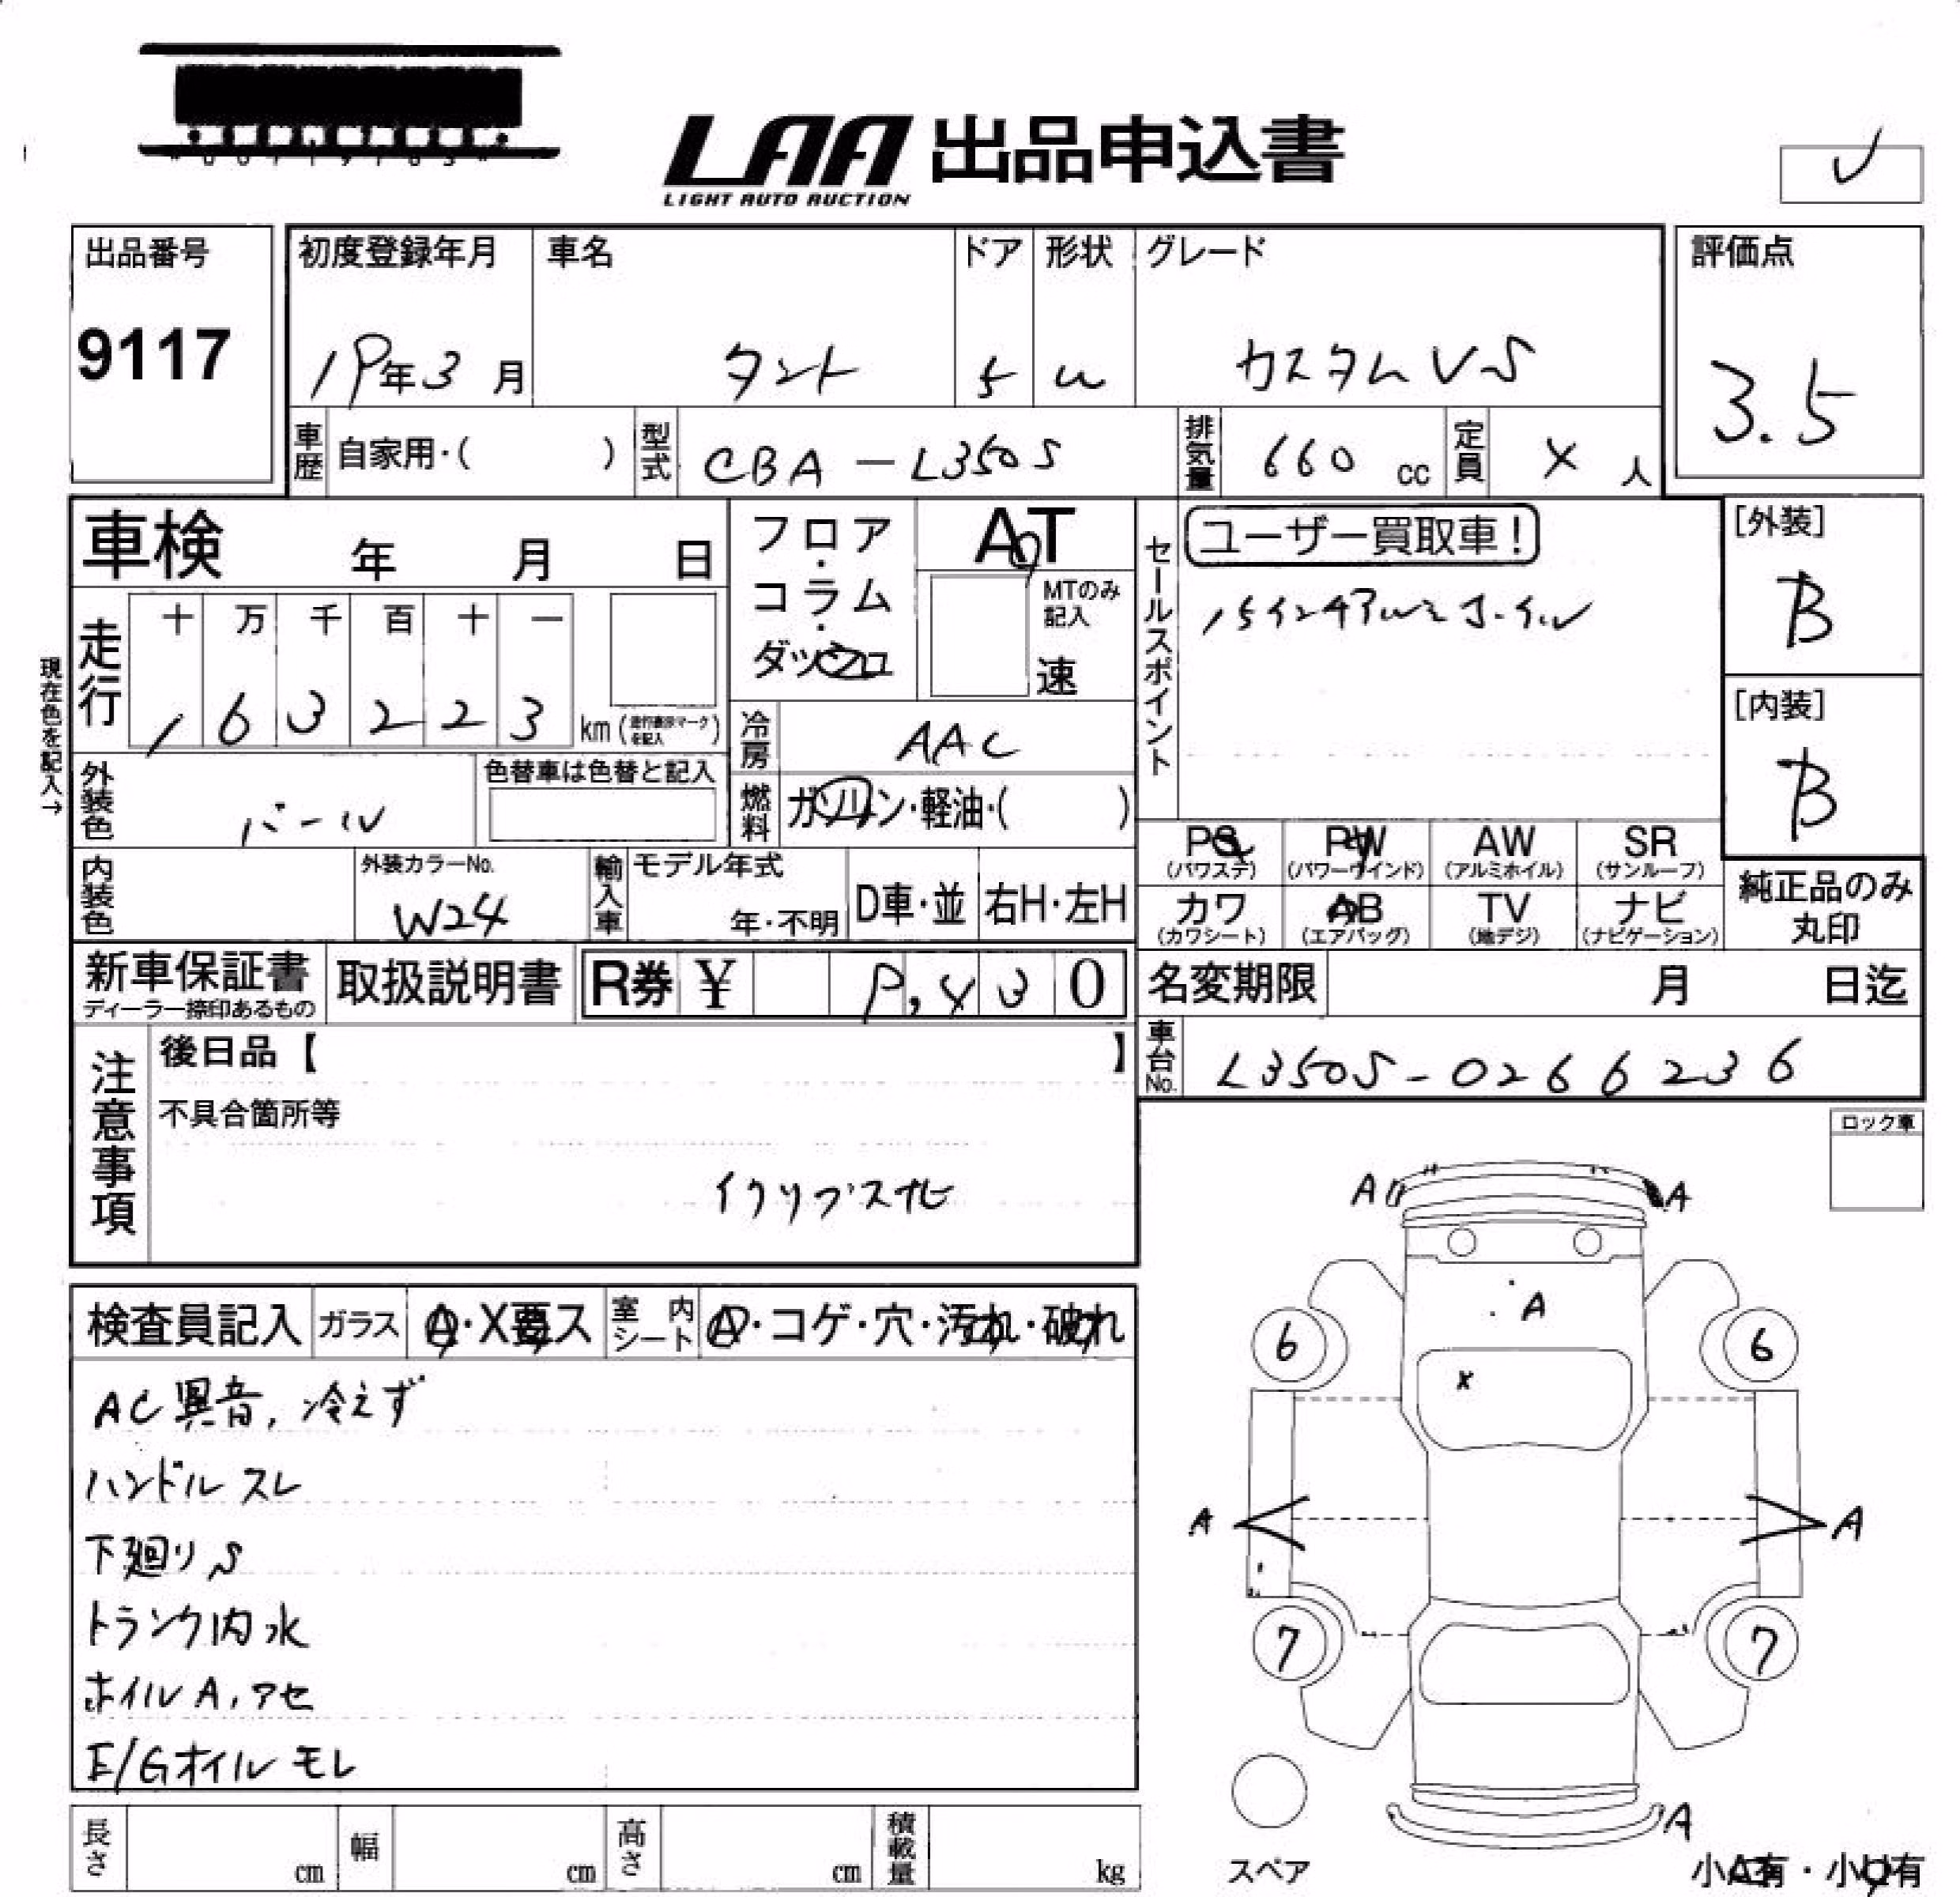 LAA 出品申込書
LIGHT AUTO AUCTION
出品番号
9117
初度登録年月
19年3月
車名
タント
ドア
5
形状
W
グレード
カスタムVS
評価点
3.5
車歴
自家用・( )
型式
CBA-L350S
排気量
660 cc
定員
人
車検 年 月 日
フロア・コラム・ダッシュ
AT
MTのみ記入
速
セールスポイント
ユーザー買取車!
15インチアルミホイル
[外装]
B
[内装]
B
現在色を記入→
走行
十 万 千 百 十 一
1 6 3 2 2 3 km (走行表示マークを記入)
冷房
AAC
外装色
パール
色替車は色替と記入
燃料
ガソリン・軽油・( )
内装色
外装カラーNo.
W24
輸入車
モデル年式
年・不明
D車・並
右H・左H
PS
(パワステ)
PW
(パワーウインド)
AW
(アルミホイル)
SR
(サンルーフ)
カワ
(カワシート)
AB
(エアバッグ)
TV
(地デジ)
ナビ
(ナビゲーション)
純正品のみ丸印
新車保証書
ディーラー捺印あるもの
取扱説明書
R券 ¥ 9,430
名変期限 月 日迄
車台No.
L350S-0266236
注意事項
後日品【 】
不具合箇所等
イクリプスナビ
ロック車
検査員記入
ガラス
A・X要ス
室内シート
A・コゲ・穴・汚れ・破れ
AC異音,冷えず
ハンドルスレ
下廻りS
トランク内水
ホイルA,アセ
E/Gオイルモレ
A A
A
6 6
X
A A
7 7
A
スペア
小A有・小U有
長さ cm
幅 cm
高さ cm
積載量 kg